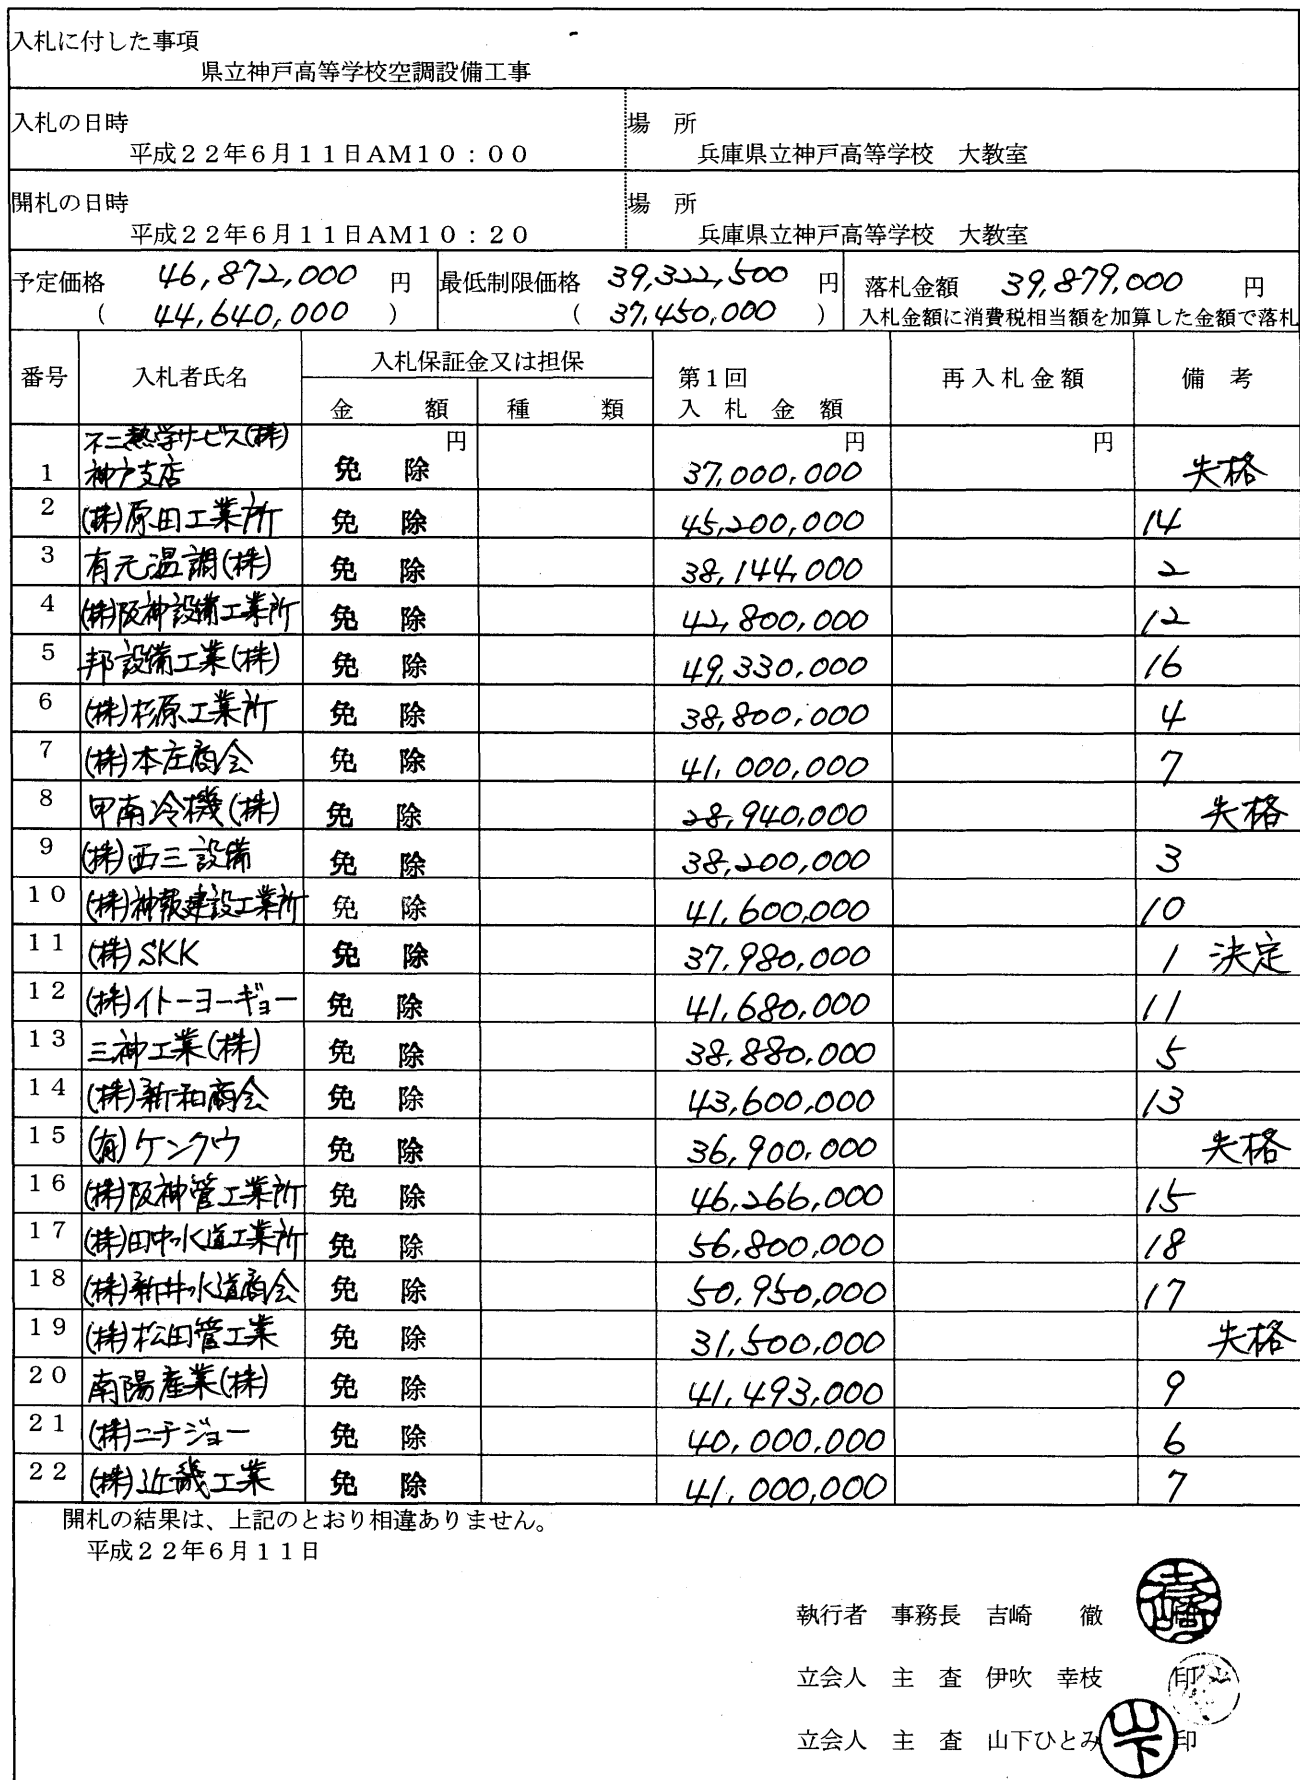 入札に付した事項
県立神戸高等学校空調設備工事
入札の日時 場 所
平成22年6月11日AM10:00 兵庫県立神戸高等学校 大教室
開札の日時 場 所
平成22年6月11日AM10:20 兵庫県立神戸高等学校 大教室
予定価格 46,872,000 円 最低制限価格 39,322,500 円 落札金額 39,879,000 円
( 44,640,000 ) ( 37,450,000 ) 入札金額に消費税相当額を加算した金額で落札
番号 入札者氏名 入札保証金又は担保 第1回 再入札金額 備 考
金 額 種 類 入 札 金 額
不二熱学サービス(株) 円 円 円
1 神戸支店 免 除 37,000,000 失格
2 (株)原田工業所 免 除 45,200,000 14
3 有元温調(株) 免 除 38,144,000 2
4 (株)阪神設備工業所 免 除 42,800,000 12
5 邦設備工業(株) 免 除 49,330,000 16
6 (株)杉原工業所 免 除 38,800,000 4
7 (株)本庄商会 免 除 41,000,000 7
8 甲南冷機(株) 免 除 28,940,000 失格
9 (株)西三設備 免 除 38,200,000 3
10 (株)神報建設工業所 免 除 41,600,000 10
11 (株)SKK 免 除 37,980,000 1 決定
12 (株)イトーヨーギョー 免 除 41,680,000 11
13 三神工業(株) 免 除 38,880,000 5
14 (株)新和商会 免 除 43,600,000 13
15 (有)ケンクウ 免 除 36,900,000 失格
16 (株)阪神管工業所 免 除 46,266,000 15
17 (株)田中水道工業所 免 除 56,800,000 18
18 (株)新井水道商会 免 除 50,950,000 17
19 (株)松田管工業 免 除 31,500,000 失格
20 南陽産業(株) 免 除 41,493,000 9
21 (株)ニチジョー 免 除 40,000,000 6
22 (株)近畿工業 免 除 41,000,000 7
開札の結果は、上記のとおり相違ありません。
平成22年6月11日
執行者 事務長 吉崎 徹
立会人 主 査 伊吹 幸枝 印
立会人 主 査 山下ひとみ 山下 印